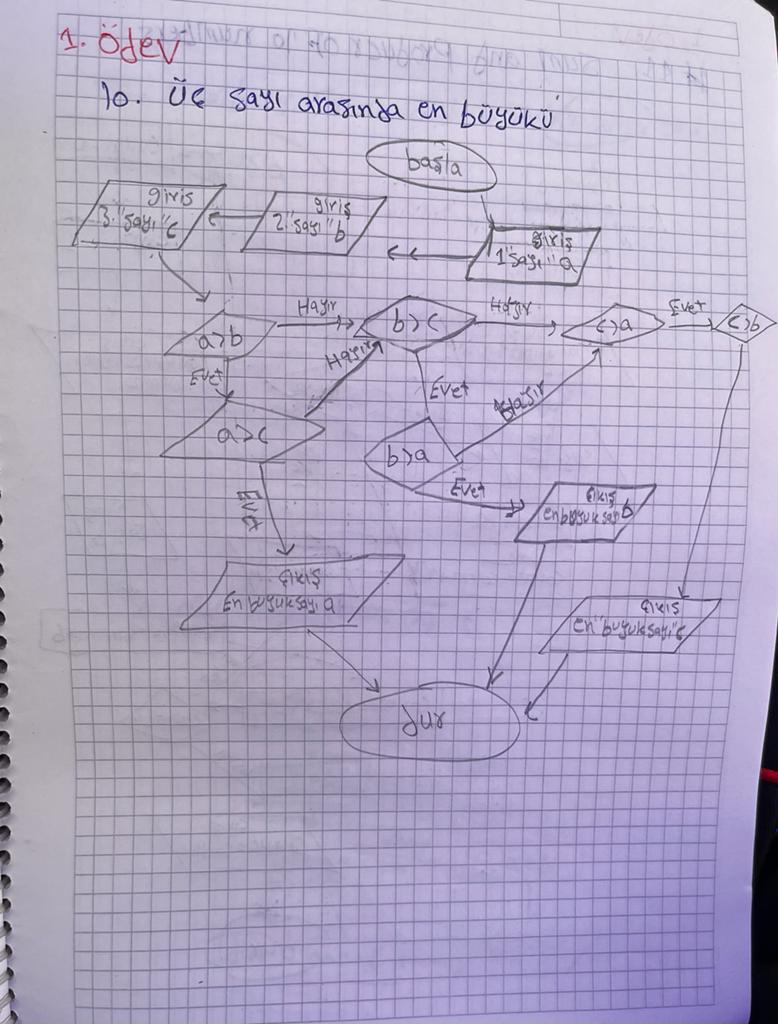 1. Ödev
10. Üç sayı arasında en büyükü
başla
giriş
1."sayı" a
giriş
2."sayı" b
giriş
3."sayı" c
a>b
Hayır
b>c
Hayır
c>a
Evet
c>b
Evet
Hayır
a>c
Evet
b>a
Hayır
Evet
Evet
çıkış
en büyük sayı b
çıkış
En büyük sayı a
çıkış
en büyük sayı c
dur